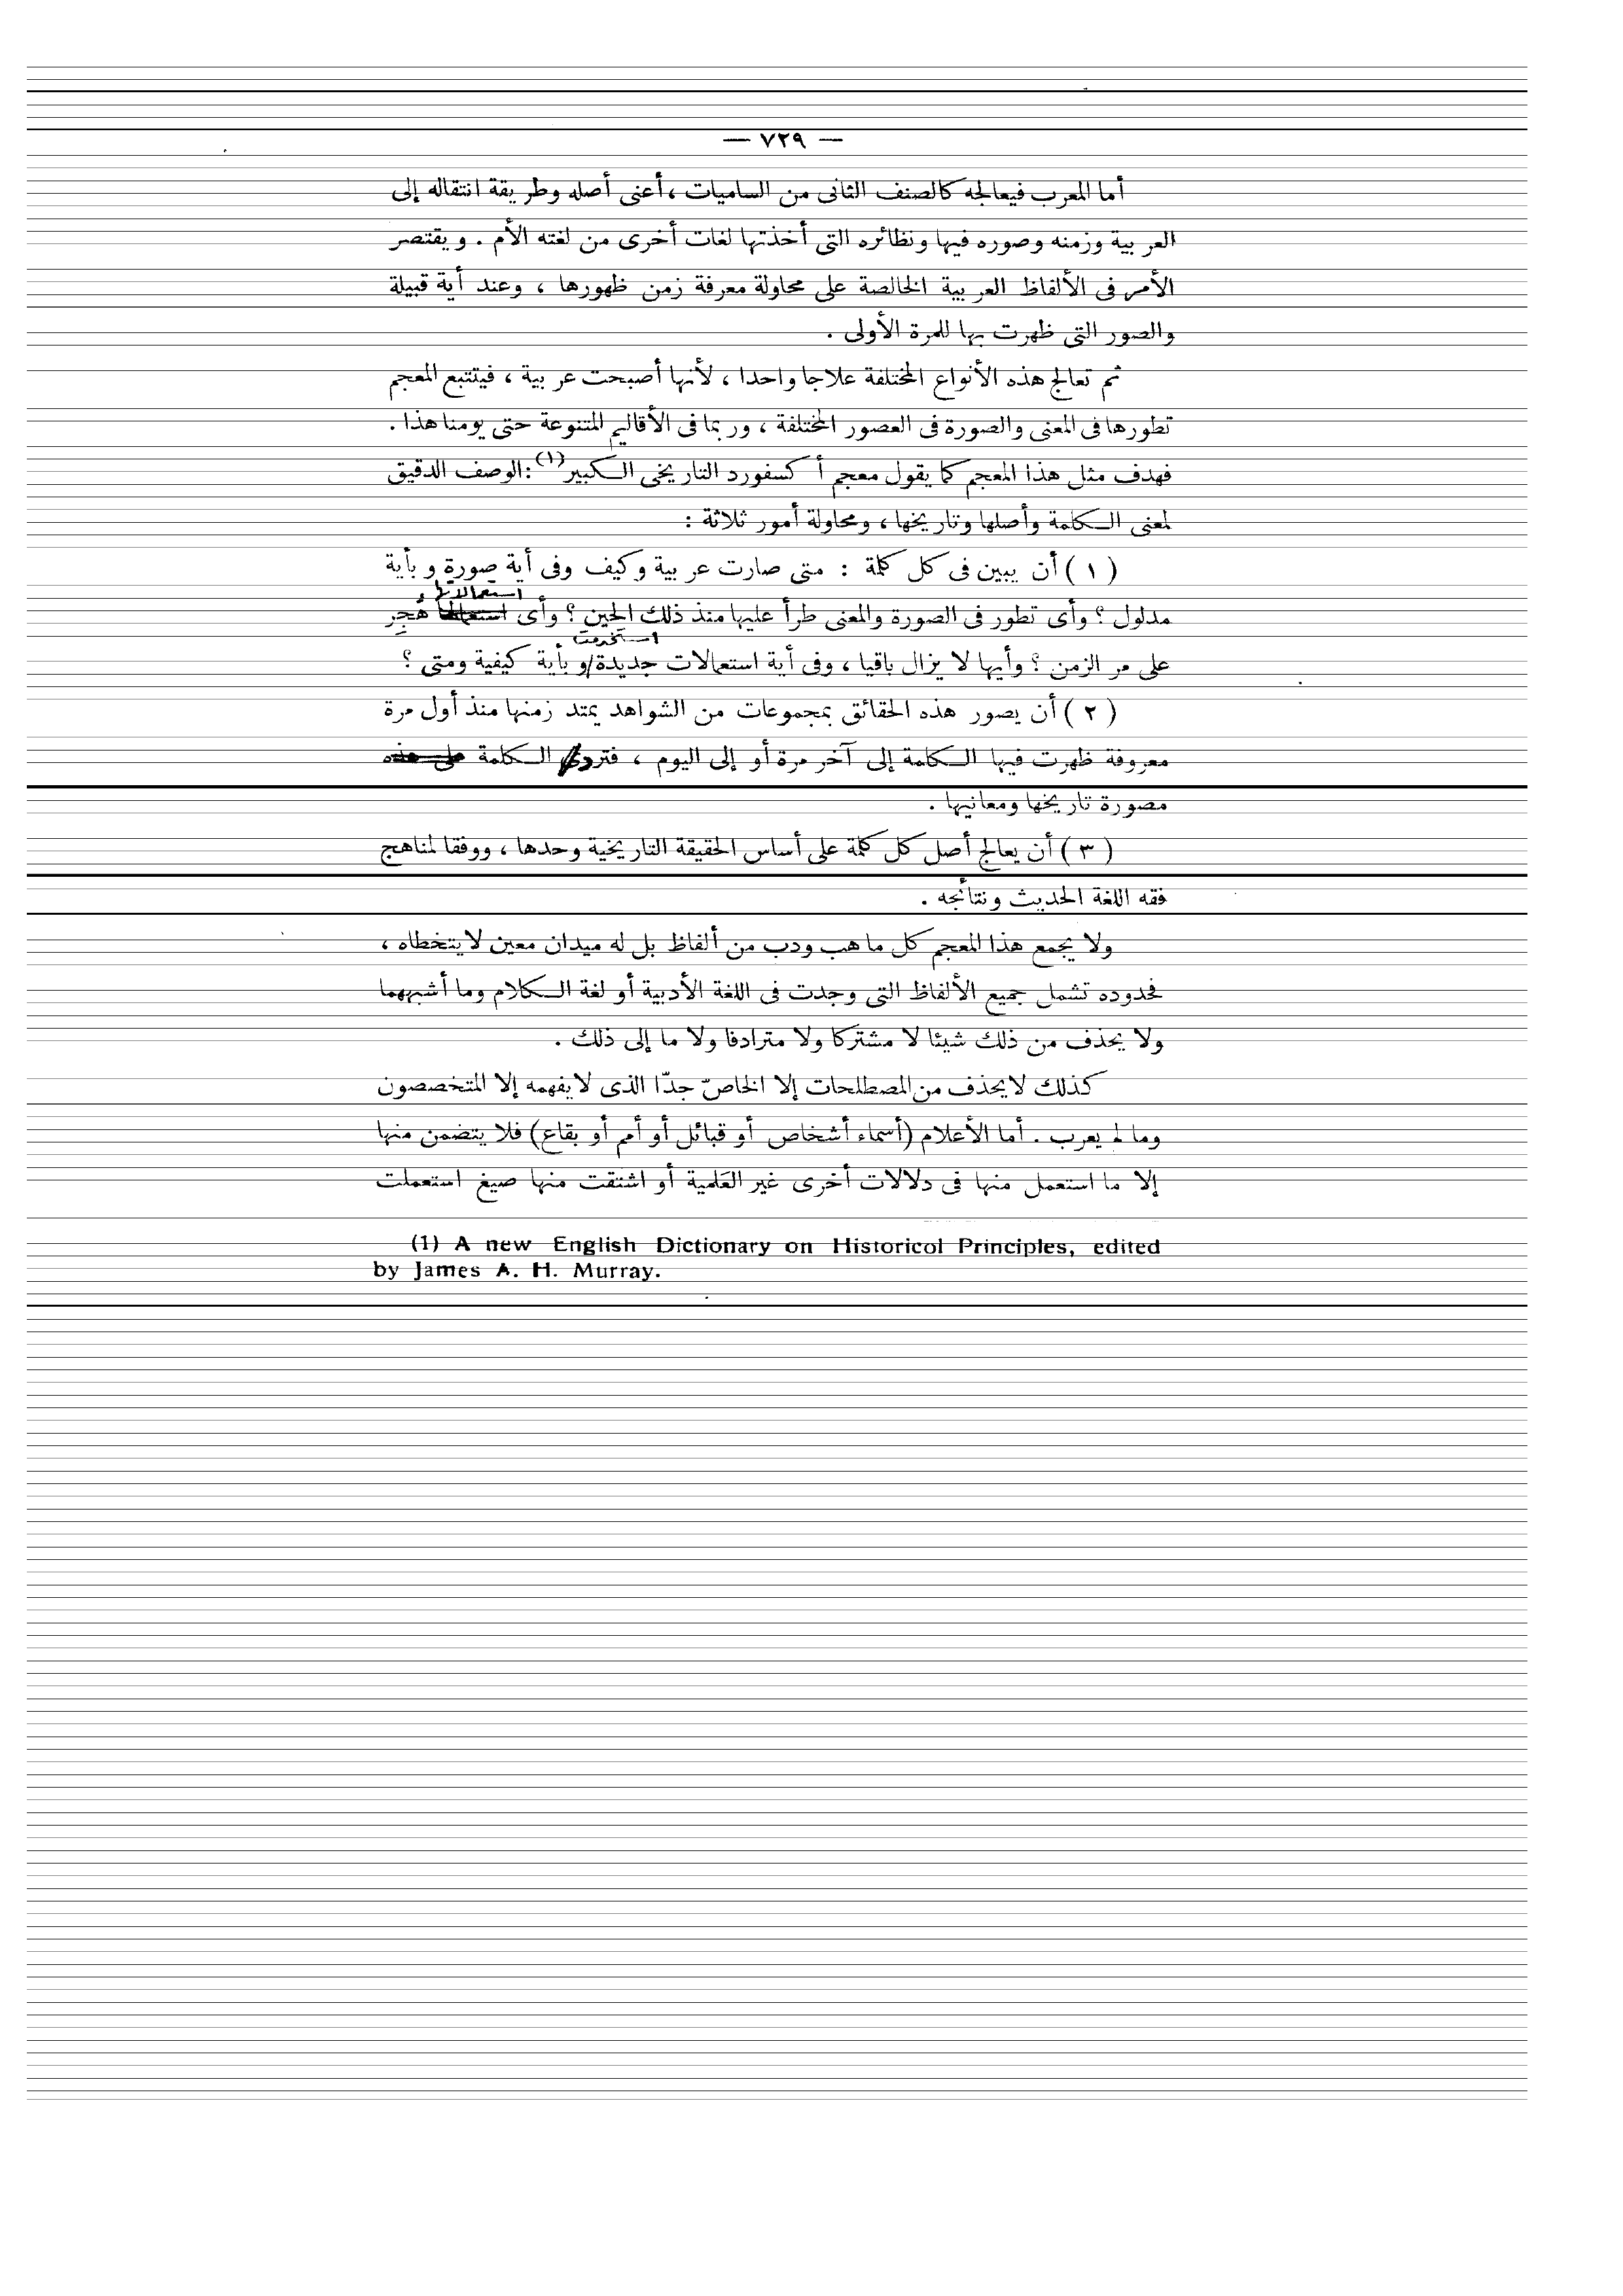 — ٧٢٩ —
أما المعرب فيعالجه كالصنف الثانى من الساميات ، أعنى أصله وطريقة انتقاله إلى
العربية وزمنه وصوره فيها ونظائره التى أخذتها لغات أخرى من لغته الأم . ويقتصر
الأمر فى الألفاظ العربية الخالصة على محاولة معرفة زمن ظهورها ، وعند أية قبيلة
والصور التى ظهرت بها للمرة الأولى .
ثم تعالج هذه الأنواع المختلفة علاجا واحدا ، لأنها أصبحت عربية ، فيتتبع المعجم
تطورها فى المعنى والصورة فى العصور المختلفة ، وربما فى الأقاليم المتنوعة حتى يومنا هذا .
فهدف مثل هذا المعجم كما يقول معجم أكسفورد التاريخى الكبير(١) : الوصف الدقيق
لمعنى الكلمة وأصلها وتاريخها ، ومحاولة أمور ثلاثة :
( ١ ) أن يبين فى كل كلمة : متى صارت عربية وكيف وفى أية صورة وبأية
استعمالاتها
مدلول ؟ وأى تطور فى الصورة والمعنى طرأ عليها منذ ذلك الحين ؟ وأى هُجِر
استخدمت
على مر الزمن ؟ وأيها لا يزال باقيا ، وفى أية استعمالات جديدة/و بأية كيفية ومتى ؟
( ٢ ) أن يصور هذه الحقائق بمجموعات من الشواهد يمتد زمنها منذ أول مرة
معروفة ظهرت فيها الكلمة إلى آخر مرة أو إلى اليوم ، الكلمة
مصورة تاريخها ومعانيها .
( ٣ ) أن يعالج أصل كل كلمة على أساس الحقيقة التاريخية وحدها ، ووفقا لمناهج
فقه اللغة الحديث ونتائجه .
ولا يجمع هذا المعجم كل ما هب ودب من ألفاظ بل له ميدان معين لا يتخطاه ،
فحدوده تشمل جميع الألفاظ التى وجدت فى اللغة الأدبية أو لغة الكلام وما أشبههما
ولا يحذف من ذلك شيئا لا مشتركا ولا مترادفا ولا ما إلى ذلك .
كذلك لا يحذف من المصطلحات إلا الخاصّ جدّا الذى لا يفهمه إلا المتخصصون
وما لم يعرب . أما الأعلام (أسماء أشخاص أو قبائل أو أمم أو بقاع) فلا يتضمن منها
إلا ما استعمل منها فى دلالات أخرى غير العَلمية أو اشتقت منها صيغ استعملت
(1) A new English Dictionary on Historicol Principles, edited
by James A. H. Murray.